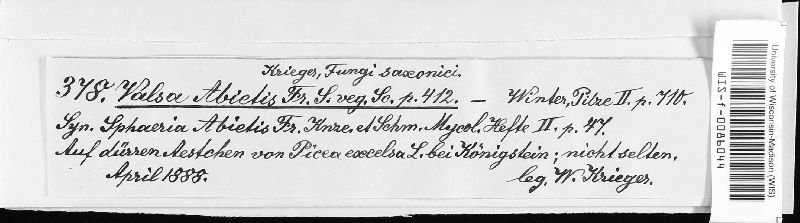 Krieger, Fungi saxonici.
378. Valsa Abietis Fr. S. veg. Sc. p. 412. — Winter, Pilze II. p. 710.
Syn. Sphaeria Abietis Fr. Knze. et Schm. Mycol. Hefte II. p. 47.
Auf dürren Aestchen von Picea excelsa L. bei Königstein; nicht selten.
April 1888. leg. W. Krieger.
University of Wisconsin-Madison (WIS)
WIS-f-0086044